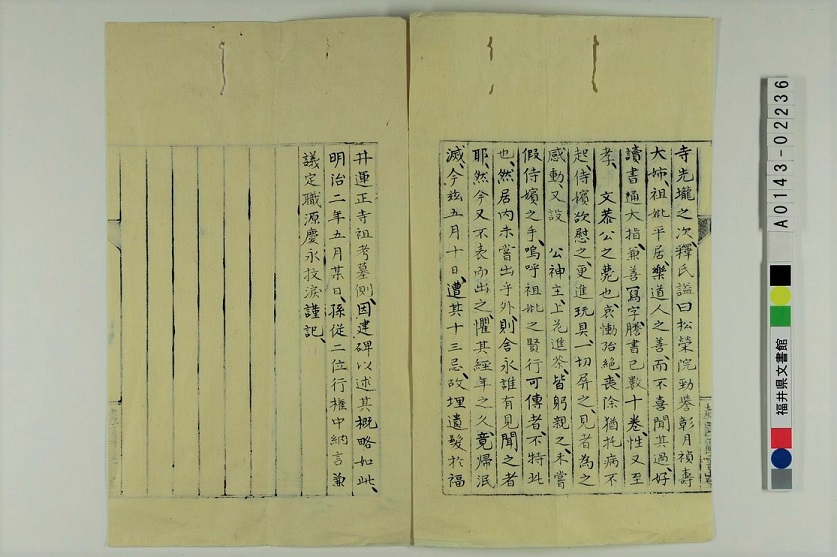 寺先壠之次、釋氏諡曰松榮院勁譽彰月禎壽
大姉、祖妣平居、樂道人之善、而不喜聞其過、好
讀書通大指、兼善寫字、謄書已數十卷、性又至
孝、 文恭公之薨也、哀慟殆絶、喪除猶托病不
起、侍嬪欲慰之、更進玩具、一切屏之、見者為之
感動、又設 公神主、上花進茶、皆躬親之、未嘗
假侍嬪之手、嗚呼祖妣之賢行可傳者、不特此
也、然居内未嘗出乎外、則舍永誰有見聞之者
耶、然今又不表而出之、懼其經年之久、竟帰泯
滅、今玆五月十日、遭其十三忌、故埋遺髪於福
井運正寺祖考墓側、因建碑以述其概略如此、
明治二年五月某日、孫従二位行權中納言兼
議定職源慶永抆淚謹記、
A0143-02236
福井県文書館